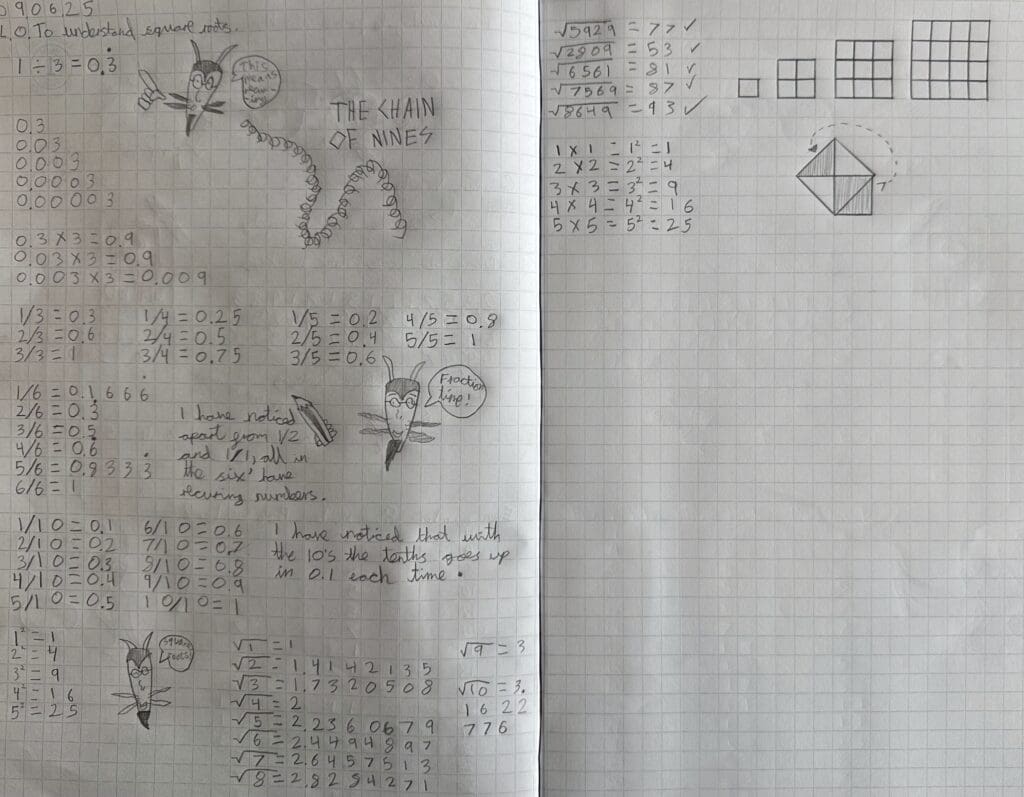 090625
L.O. To understand square roots.
1 ÷ 3 = 0.3̇
This
means
recurr-
ing.
THE CHAIN
OF NINES
0.3
0.03
0.003
0.0003
0.00003
0.3 × 3 = 0.9
0.03 × 3 = 0.9
0.003 × 3 = 0.009
1/3 = 0.3
2/3 = 0.6
3/3 = 1
1/4 = 0.25
2/4 = 0.5
3/4 = 0.75
1/5 = 0.2
2/5 = 0.4
3/5 = 0.6
4/5 = 0.8
5/5 = 1
1/6 = 0.1666̇
2/6 = 0.3
3/6 = 0.5
4/6 = 0.6̇
5/6 = 0.8333̇
6/6 = 1
I have noticed
apart from 1/2
and 1/1, all in
the six' have
recuring numbers.
Fraction
time!
1/10 = 0.1
2/10 = 0.2
3/10 = 0.3
4/10 = 0.4
5/10 = 0.5
6/10 = 0.6
7/10 = 0.7
8/10 = 0.8
9/10 = 0.9
10/10 = 1
I have noticed that with
the 10's the tenths goes up
in 0.1 each time.
1² = 1
2² = 4
3² = 9
4² = 16
5² = 25
square
roots!
√1 = 1
√2 = 1.4142135
√3 = 1.7320508
√4 = 2
√5 = 2.2360679
√6 = 2.4494897
√7 = 2.6457513
√8 = 2.8284271
√9 = 3
√10 = 3.
1622
776
√5929 = 77 ✓
√2809 = 53 ✓
√6561 = 81 ✓
√7569 = 87 ✓
√8649 = 93 ✓
1 × 1 = 1² = 1
2 × 2 = 2² = 4
3 × 3 = 3² = 9
4 × 4 = 4² = 16
5 × 5 = 5² = 25